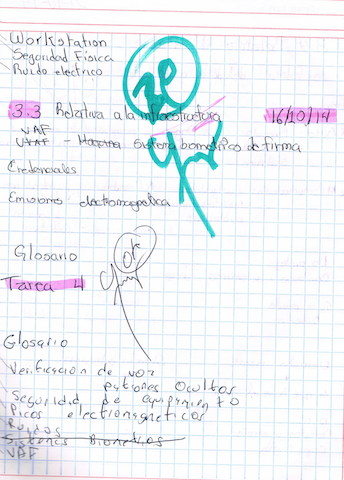 Workstation
Seguridad Fisica
Ruido electrico
20
3.3 Relativa a la infraestructura 16/10/14
VAF
- sistema biometrico de firma
Credenciales
Emisiones electromagnetica
Glosario
OK
Tarea 4
Glosario
Verificacion de voz
patrones Ocultos
Seguridad de equipamiento
Picos electromagneticos
Ruidos
Sistemas Biometricos
VAF